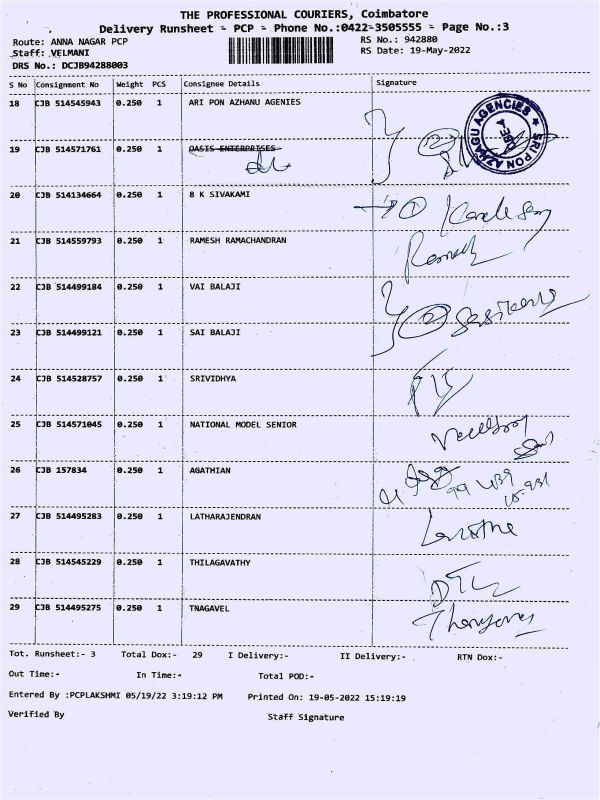 THE PROFESSIONAL COURIERS, Coimbatore
Delivery Runsheet - PCP - Phone No.:0422-3505555 - Page No.:3
Route: ANNA NAGAR PCP
RS No.: 942880
Staff: VELMANI
RS Date: 19-May-2022
DRS No.: DCJB94288003
S No Consignment No Weight PCS Consignee Details Signature
18 CJB 514545943 0.250 1 ARI PON AZHANU AGENIES
SRI PON AZHAGU AGENCIES
19 CJB 514571761 0.250 1 OASIS ENTERPRISES
20 CJB 514134664 0.250 1 8 K SIVAKAMI
21 CJB 514559793 0.250 1 RAMESH RAMACHANDRAN Ramesh
22 CJB 514499184 0.250 1 VAI BALAJI
23 CJB 514499121 0.250 1 SAI BALAJI
24 CJB 514528757 0.250 1 SRIVIDHYA
25 CJB 514571045 0.250 1 NATIONAL MODEL SENIOR
26 CJB 157834 0.250 1 AGATHIAN
27 CJB 514495283 0.250 1 LATHARAJENDRAN
28 CJB 514545229 1 0.250 THILAGAVATHY
29 CJB 514495275 0.250 1 TNAGAVEL
Tot. Runsheet:- 3 Total Dox:- 29 I Delivery:- II Delivery:- RTN Dox:-
Out Time:- In Time:- Total POD:-
Entered By :PCPLAKSHMI 05/19/22 3:19:12 PM Printed On: 19-05-2022 15:19:19
Verified By Staff Signature